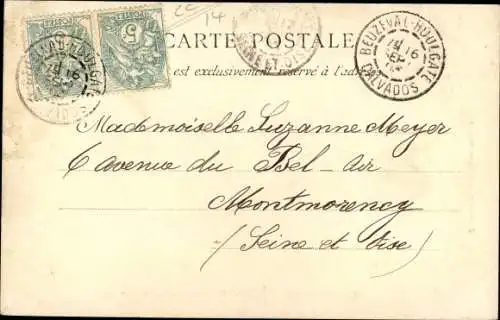 14
CARTE POSTALE
est exclusivement réservé à l'ad
BEUZEVAL-HOULGATE
16
CALVADOS
5
16
SEINE-ET-OISE
Mademoiselle Suzanne Meyer
6 avenue du Bel-Air
Montmorency
(Seine et Oise)